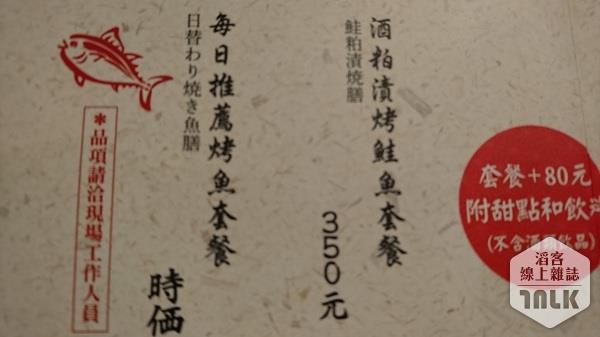 酒粕漬烤鮭魚套餐
鮭粕漬燒膳
350元
每日推薦烤魚套餐
日替わり焼き魚膳
時価
*品項請洽現場工作人員
套餐+80元
附甜點和飲
(不含酒類飲品)
滔客
線上雜誌
TALK